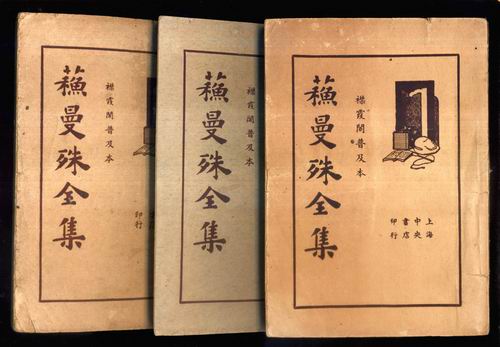 蘓曼殊全集
襟霞閣普及本
印行
蘓曼殊全集
襟霞閣普及本
蘓曼殊全集
襟霞閣普及本
1
上海
中央
書店
印行